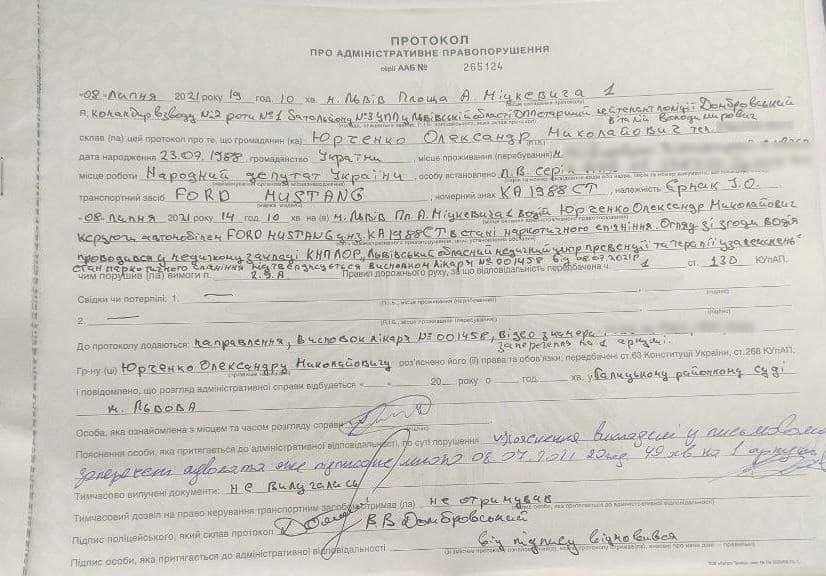 ПРОТОКОЛ
ПРО АДМІНІСТРАТИВНЕ ПРАВОПОРУШЕННЯ
серії ААБ № 265124
«08» липня 2021 року 19 год. 10 хв. м. Львів Площа А. Міцкевича 1
Я, командир взводу №2 роти №1 батальйону №3 УПП у Львівській області ДПП старший лейтенант поліції Домбровський
Віталій Володимирович
склав (ла) цей протокол про те, що громадянин (ка) Юрченко Олександр Миколайович тел.
дата народження 23.09.1988 громадянство України, місце проживання (перебування) м
місце роботи Народний депутат України особу встановлено п.В. серія
транспортний засіб FORD MUSTANG, номерний знак КА1988СТ, належність Єрмак І.О.
«08» липня 2021 року 14 год. 10 хв на (в) м. Львів Пл А. Міцкевича 1 водій Юрченко Олександр Миколайович
керував автомобілем FORD MUSTANG днз. КА1988СТ в стані наркотичного сп'яніння. Огляд зі згоди водія
проводився у медичному закладі КНП ЛОР „Львівський обласний медичний центр превенції та терапії узалежнень"
стан наркотичного сп'яніння підтверджується висновком лікаря №001458 від 08.07.2021р
чим порушив (ла) вимоги п. 2.9.А Правил дорожнього руху, за що відповідальність передбачена ч. 1 ст. 130 КУпАП.
Свідки чи потерпілі: 1. —
(П.І.Б., місце проживання (перебування) (підпис)
2. —
(П.І.Б., місце проживання (перебування) (підпис)
До протоколу додаються: направлення, висновок лікаря №001458, відео з камери
заперечення на 1 аркуші.
Гр-ну (ці) Юрченко Олександру Миколайовичу роз'яснено його (її) права та обов'язки, передбачені ст.63 Конституції України, ст.268 КУпАП,
і повідомлено, що розгляд адміністративної справи відбудеться « » 20 року о год. хв. у Галицькому районному суді
м. Львова
Особа, яка ознайомлена з місцем та часом розгляду справи
Пояснення особи, яка притягається до адміністративної відповідальності, по суті порушення Пояснення викладені у письмовому
запереченні адвоката яке підписане 08.07.2021 20 год 49 хв на 1 аркуші
Тимчасово вилучені документи: не вилучались
Тимчасовий дозвіл на право керування транспортним засобом отримав (ла) не отримував
Підпис поліцейського, який склав протокол В.В Домбровський
Підпис особи, яка притягається до адміністративної відповідальності від підпису відмовився